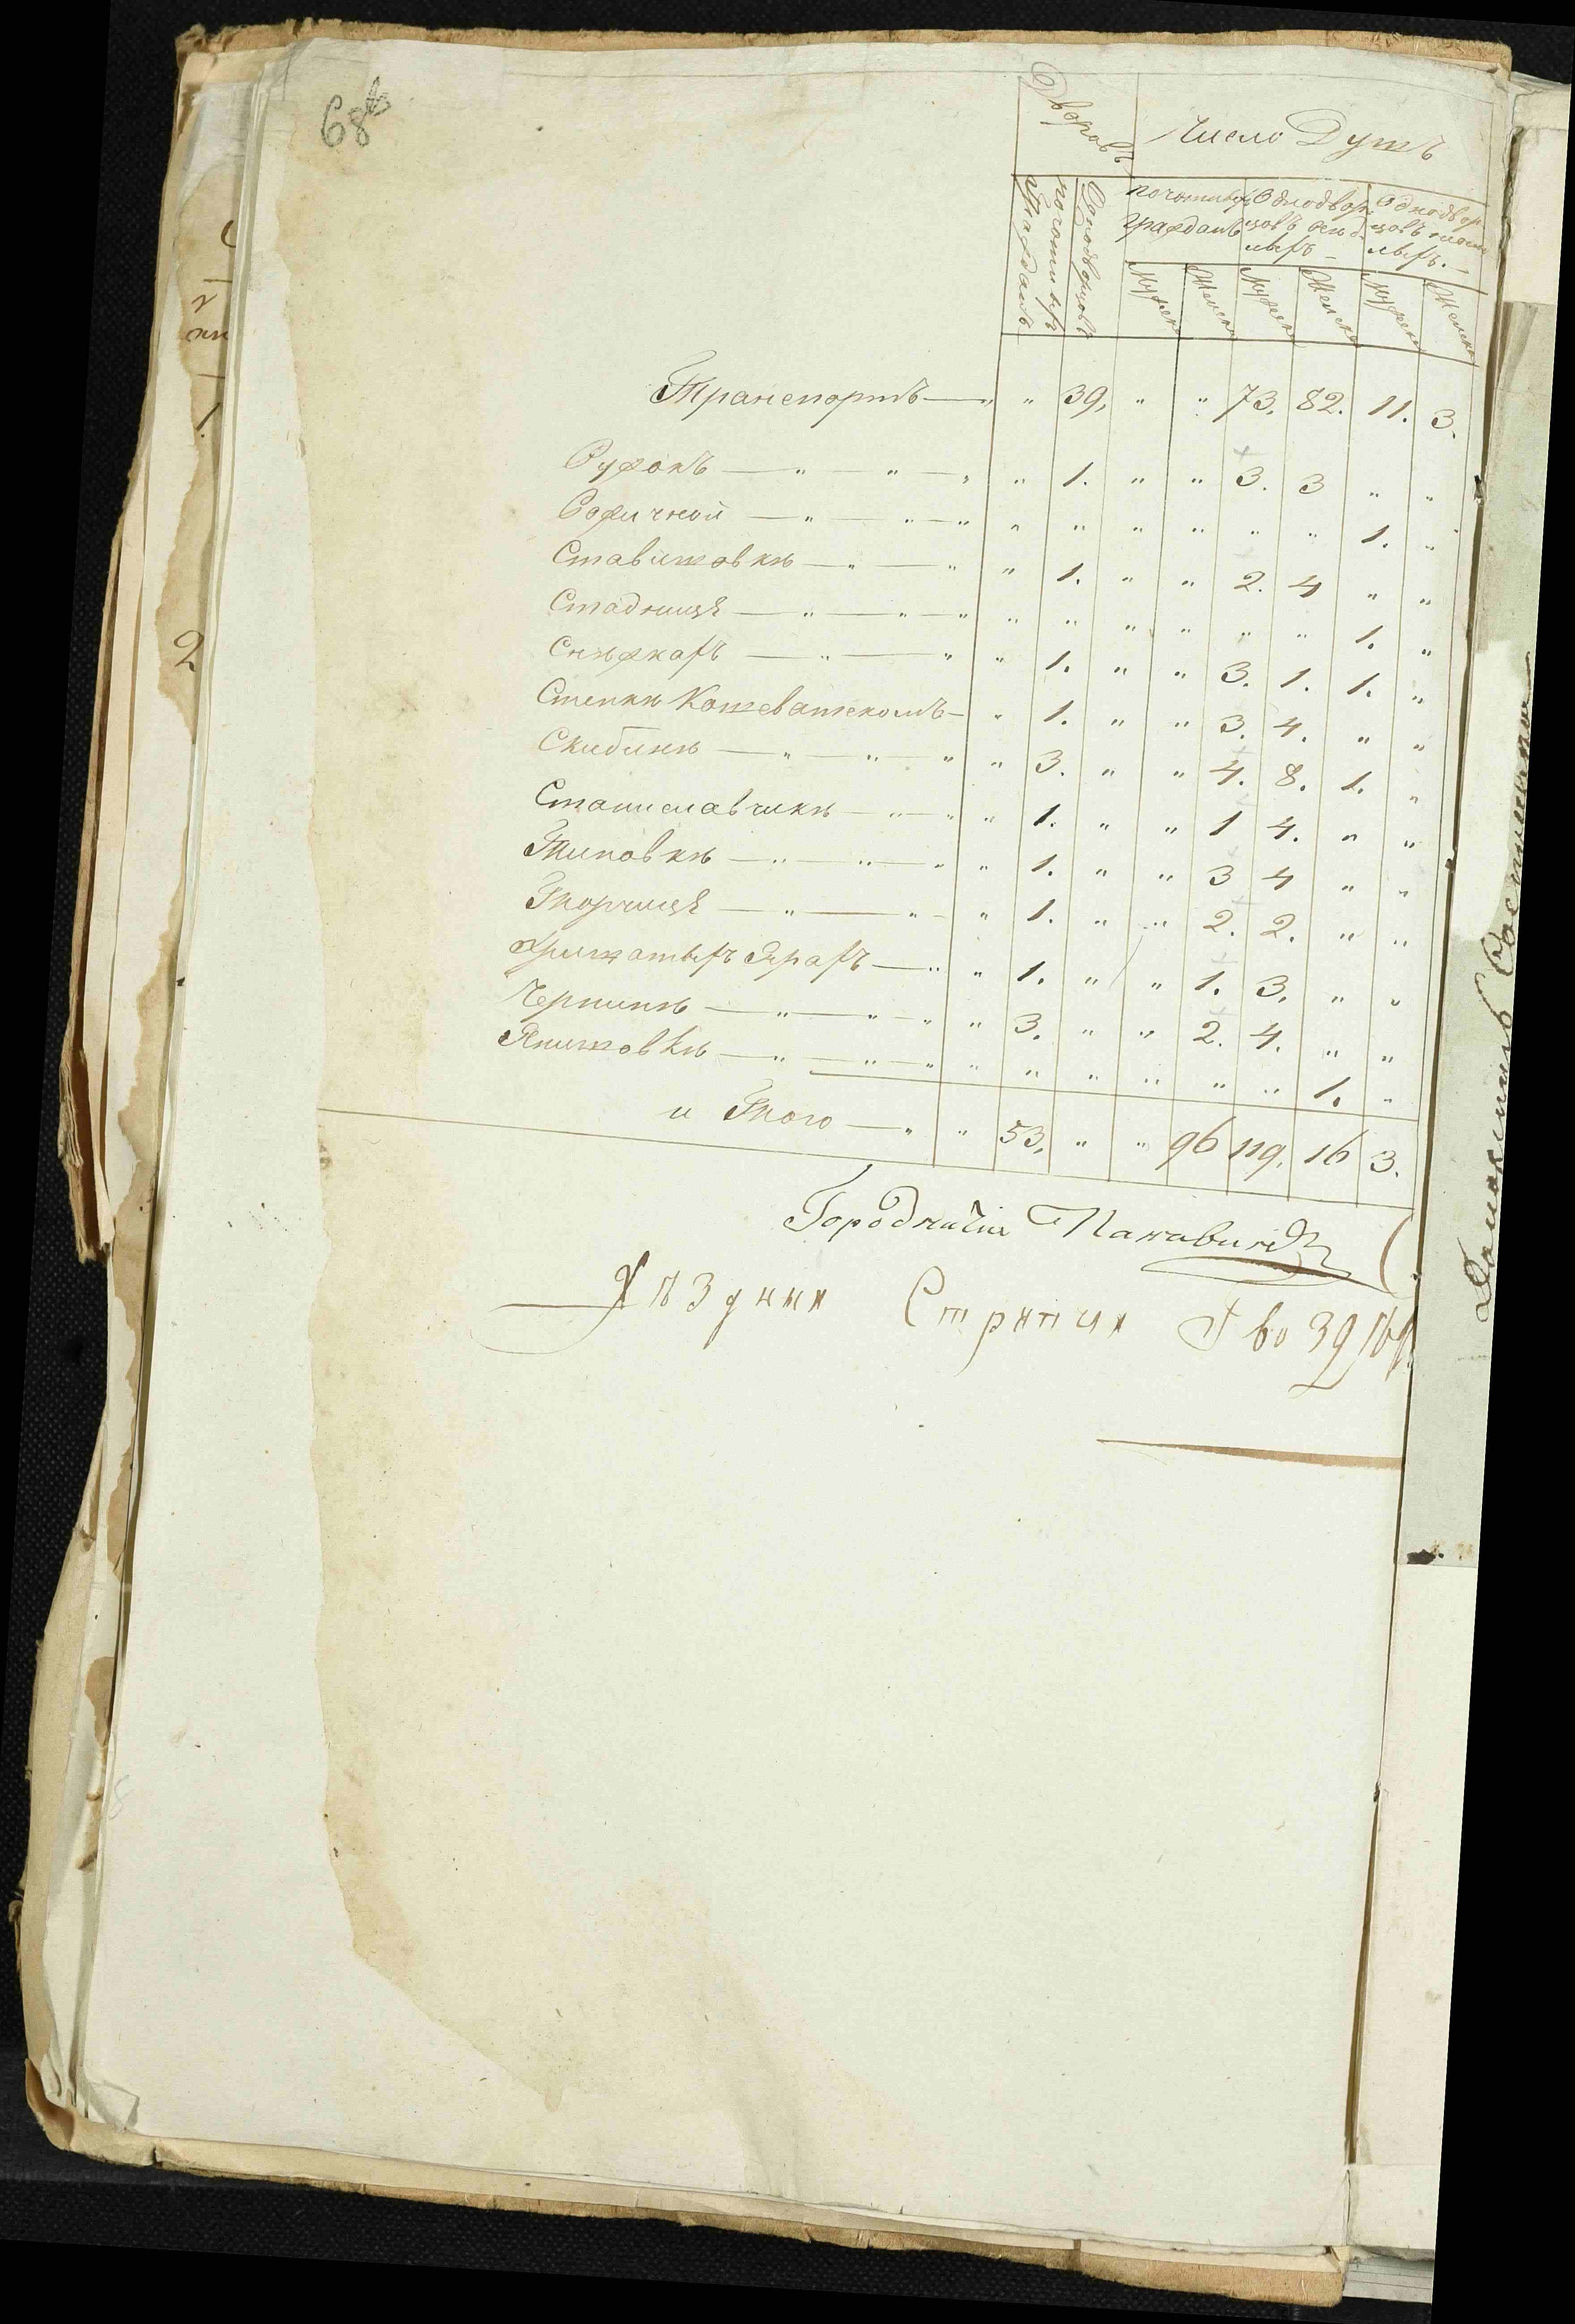 68
Дворовъ
Число Душъ
почотныхъ Гражданъ
Однодворцовъ
почотныхъ Гражданъ
Однодворцовъ осѣдлыхъ
Однодворцовъ неосѣдлыхъ.
Мужеск Женск Мужеск Женск Мужеск Женск
Транспортъ — „ „ 39. „ „ 73. 82. 11. 3.
Ружокъ — „ — „ — „ „ 1. „ „ 3. 3 „ „
— „ — „ — „ „ „ „ „ „ „ 1. „
Ставишовкѣ — „ — „ „ 1. „ „ 2. 4 „ „
Стадницѣ — „ — „ — „ „ „ „ „ „ „ 1. „
Снѣжкахъ — „ — „ „ 1. „ „ 3. 1. 1. „
Степкѣ Кошеватскомъ — „ 1. „ „ 3. 4. „ „
Скибинѣ — „ — „ — „ „ 3. „ „ 4. 8. 1. „
Станиславчикѣ — „ — „ „ 1. „ „ 1 4. „ „
Типовкѣ — „ — „ — „ „ 1. „ „ 3 4 „ „
Торчицѣ — „ — „ — „ 1. „ „ 2. 2. „ „
Ярахъ — „ „ 1. „ „ 1. 3. „ „
Чернинѣ — „ — „ — „ „ 3. „ „ 2. 4. „ „
Янишовкѣ — „ — „ — „ „ „ „ „ „ „ 1. „
и Того — „ „ 53. „ „ 96 119. 16 3.
Городничій
Стряпчи